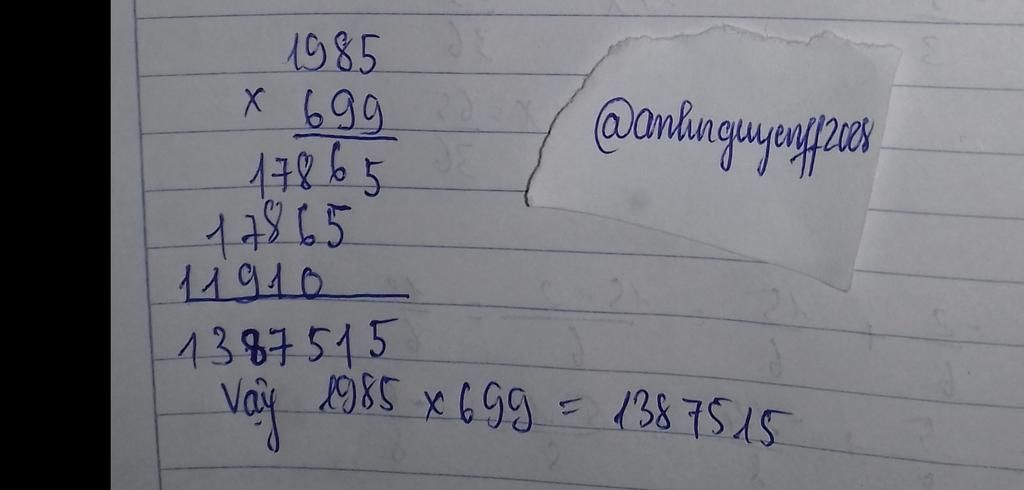 1985
x 699
17865
17865
11910
1387515
Vậy 1985 x 699 = 1387515
@anhnguyenff2008